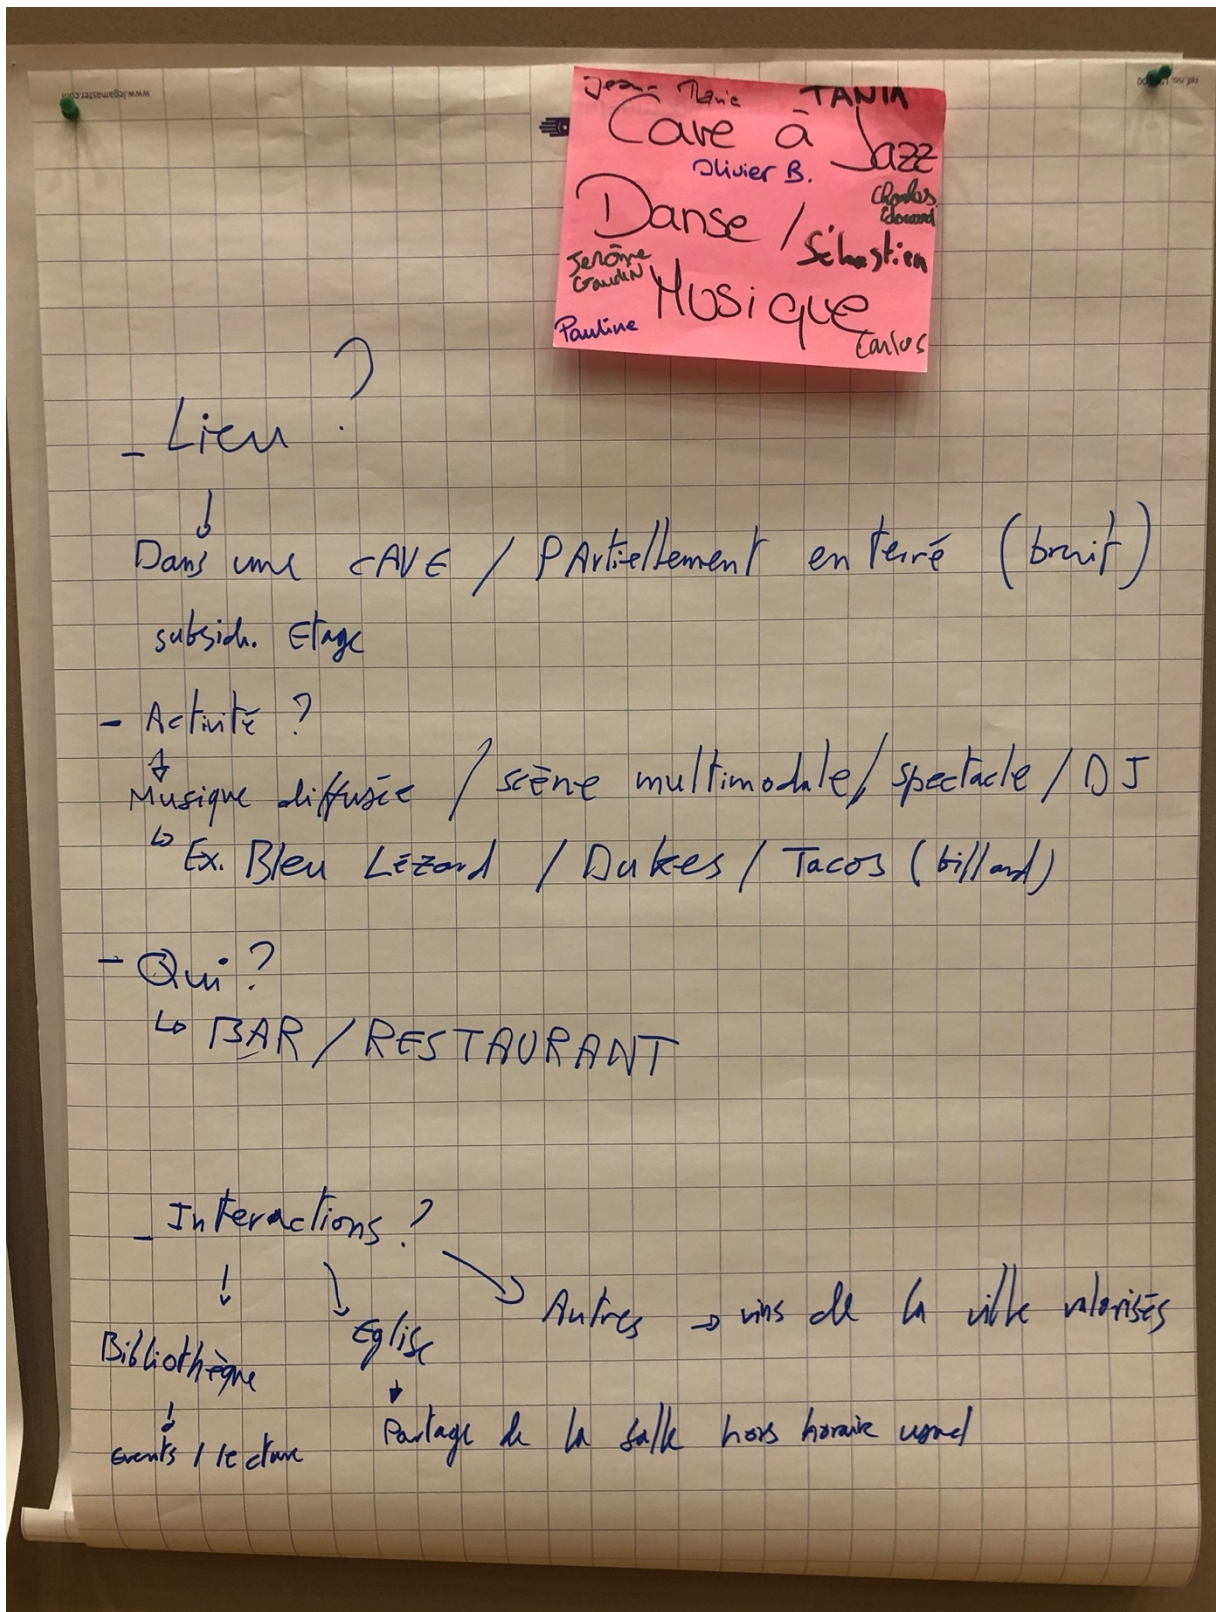 www.legamaster.com
Jean-Marie TANIA
Cave à Jazz
Olivier B.
Charles Edouard
Danse /
Sébastien
Jerôme Gaudin
Musique
Pauline
Carlos
- Lieu ?
Dans une CAVE / PArtiellement enterré (bruit)
subsid. Etage
- Activité ?
Musique diffusée / scène multimodale / spectacle / DJ
Ex. Bleu Lézard / Dukes / Tacos (billard)
- Qui ?
BAR / RESTAURANT
- Interactions ?
Autres → vins de la ville valorisés
Eglise
Bibliothèque
Partage de la salle hors horaire usuel
Events / lecture